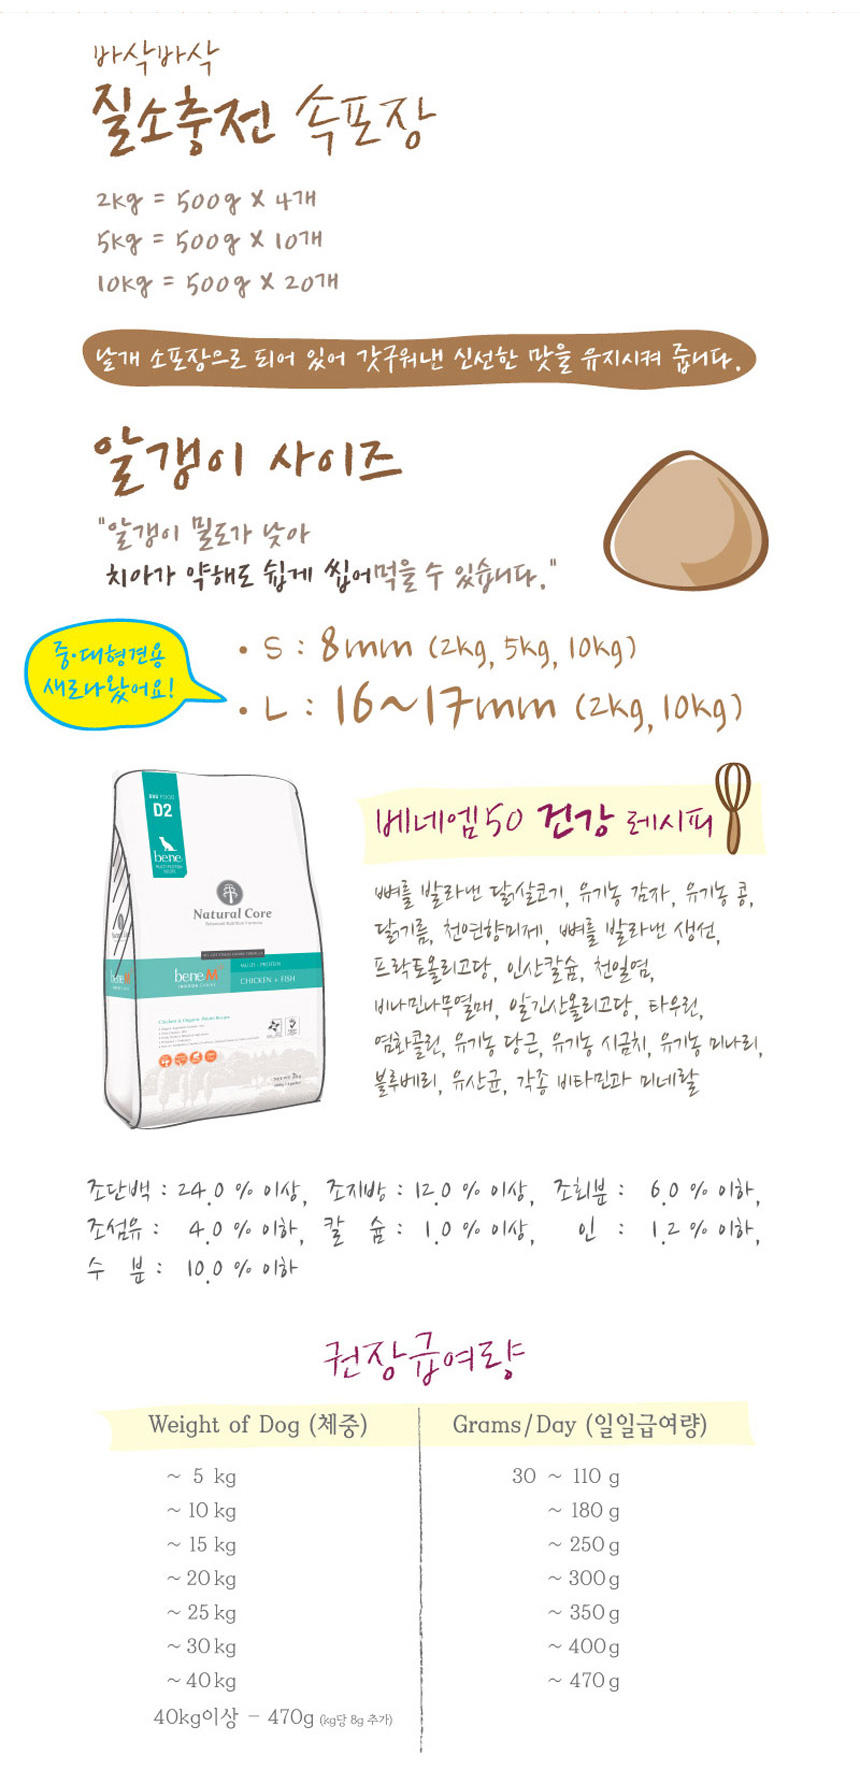 바삭바삭
질소충전 속포장
2kg = 500g X 4개
5kg = 500g X 10개
10kg = 500g X 20개
낱개 소포장으로 되어 있어 갓구워낸 신선한 맛을 유지시켜 줍니다.
알갱이 사이즈
"알갱이 밀도가 낮아
치아가 약해도 쉽게 씹어먹을 수 있습니다."
중·대형견용
새로나왔어요!
• S : 8mm (2kg, 5kg, 10kg)
• L : 16~17mm (2kg, 10kg)
D2
bene
Natural Core
bene M
MULTI - PROTEIN
CHICKEN + FISH
Chicken & Organic Potato Recipe
베네엠50 건강 레시피
뼈를 발라낸 닭살코기, 유기농 감자, 유기농 콩,
닭기름, 천연향미제, 뼈를 발라낸 생선,
프락토올리고당, 인산칼슘, 천일염,
비나민나무열매, 알긴산올리고당, 타우린,
염화콜린, 유기농 당근, 유기농 시금치, 유기농 미나리,
블루베리, 유산균, 각종 비타민과 미네랄
조단백 : 24.0 % 이상, 조지방 : 12.0 % 이상, 조회분 : 6.0 % 이하,
조섬유 : 4.0 % 이하, 칼 슘 : 1.0 % 이상, 인 : 1.2 % 이하,
수 분 : 10.0 % 이하
권장급여량
Weight of Dog (체중) Grams/Day (일일급여량)
~ 5 kg 30 ~ 110 g
~ 10 kg ~ 180 g
~ 15 kg ~ 250 g
~ 20 kg ~ 300 g
~ 25 kg ~ 350 g
~ 30 kg ~ 400 g
~ 40 kg ~ 470 g
40kg이상 - 470g (kg당 8g 추가)